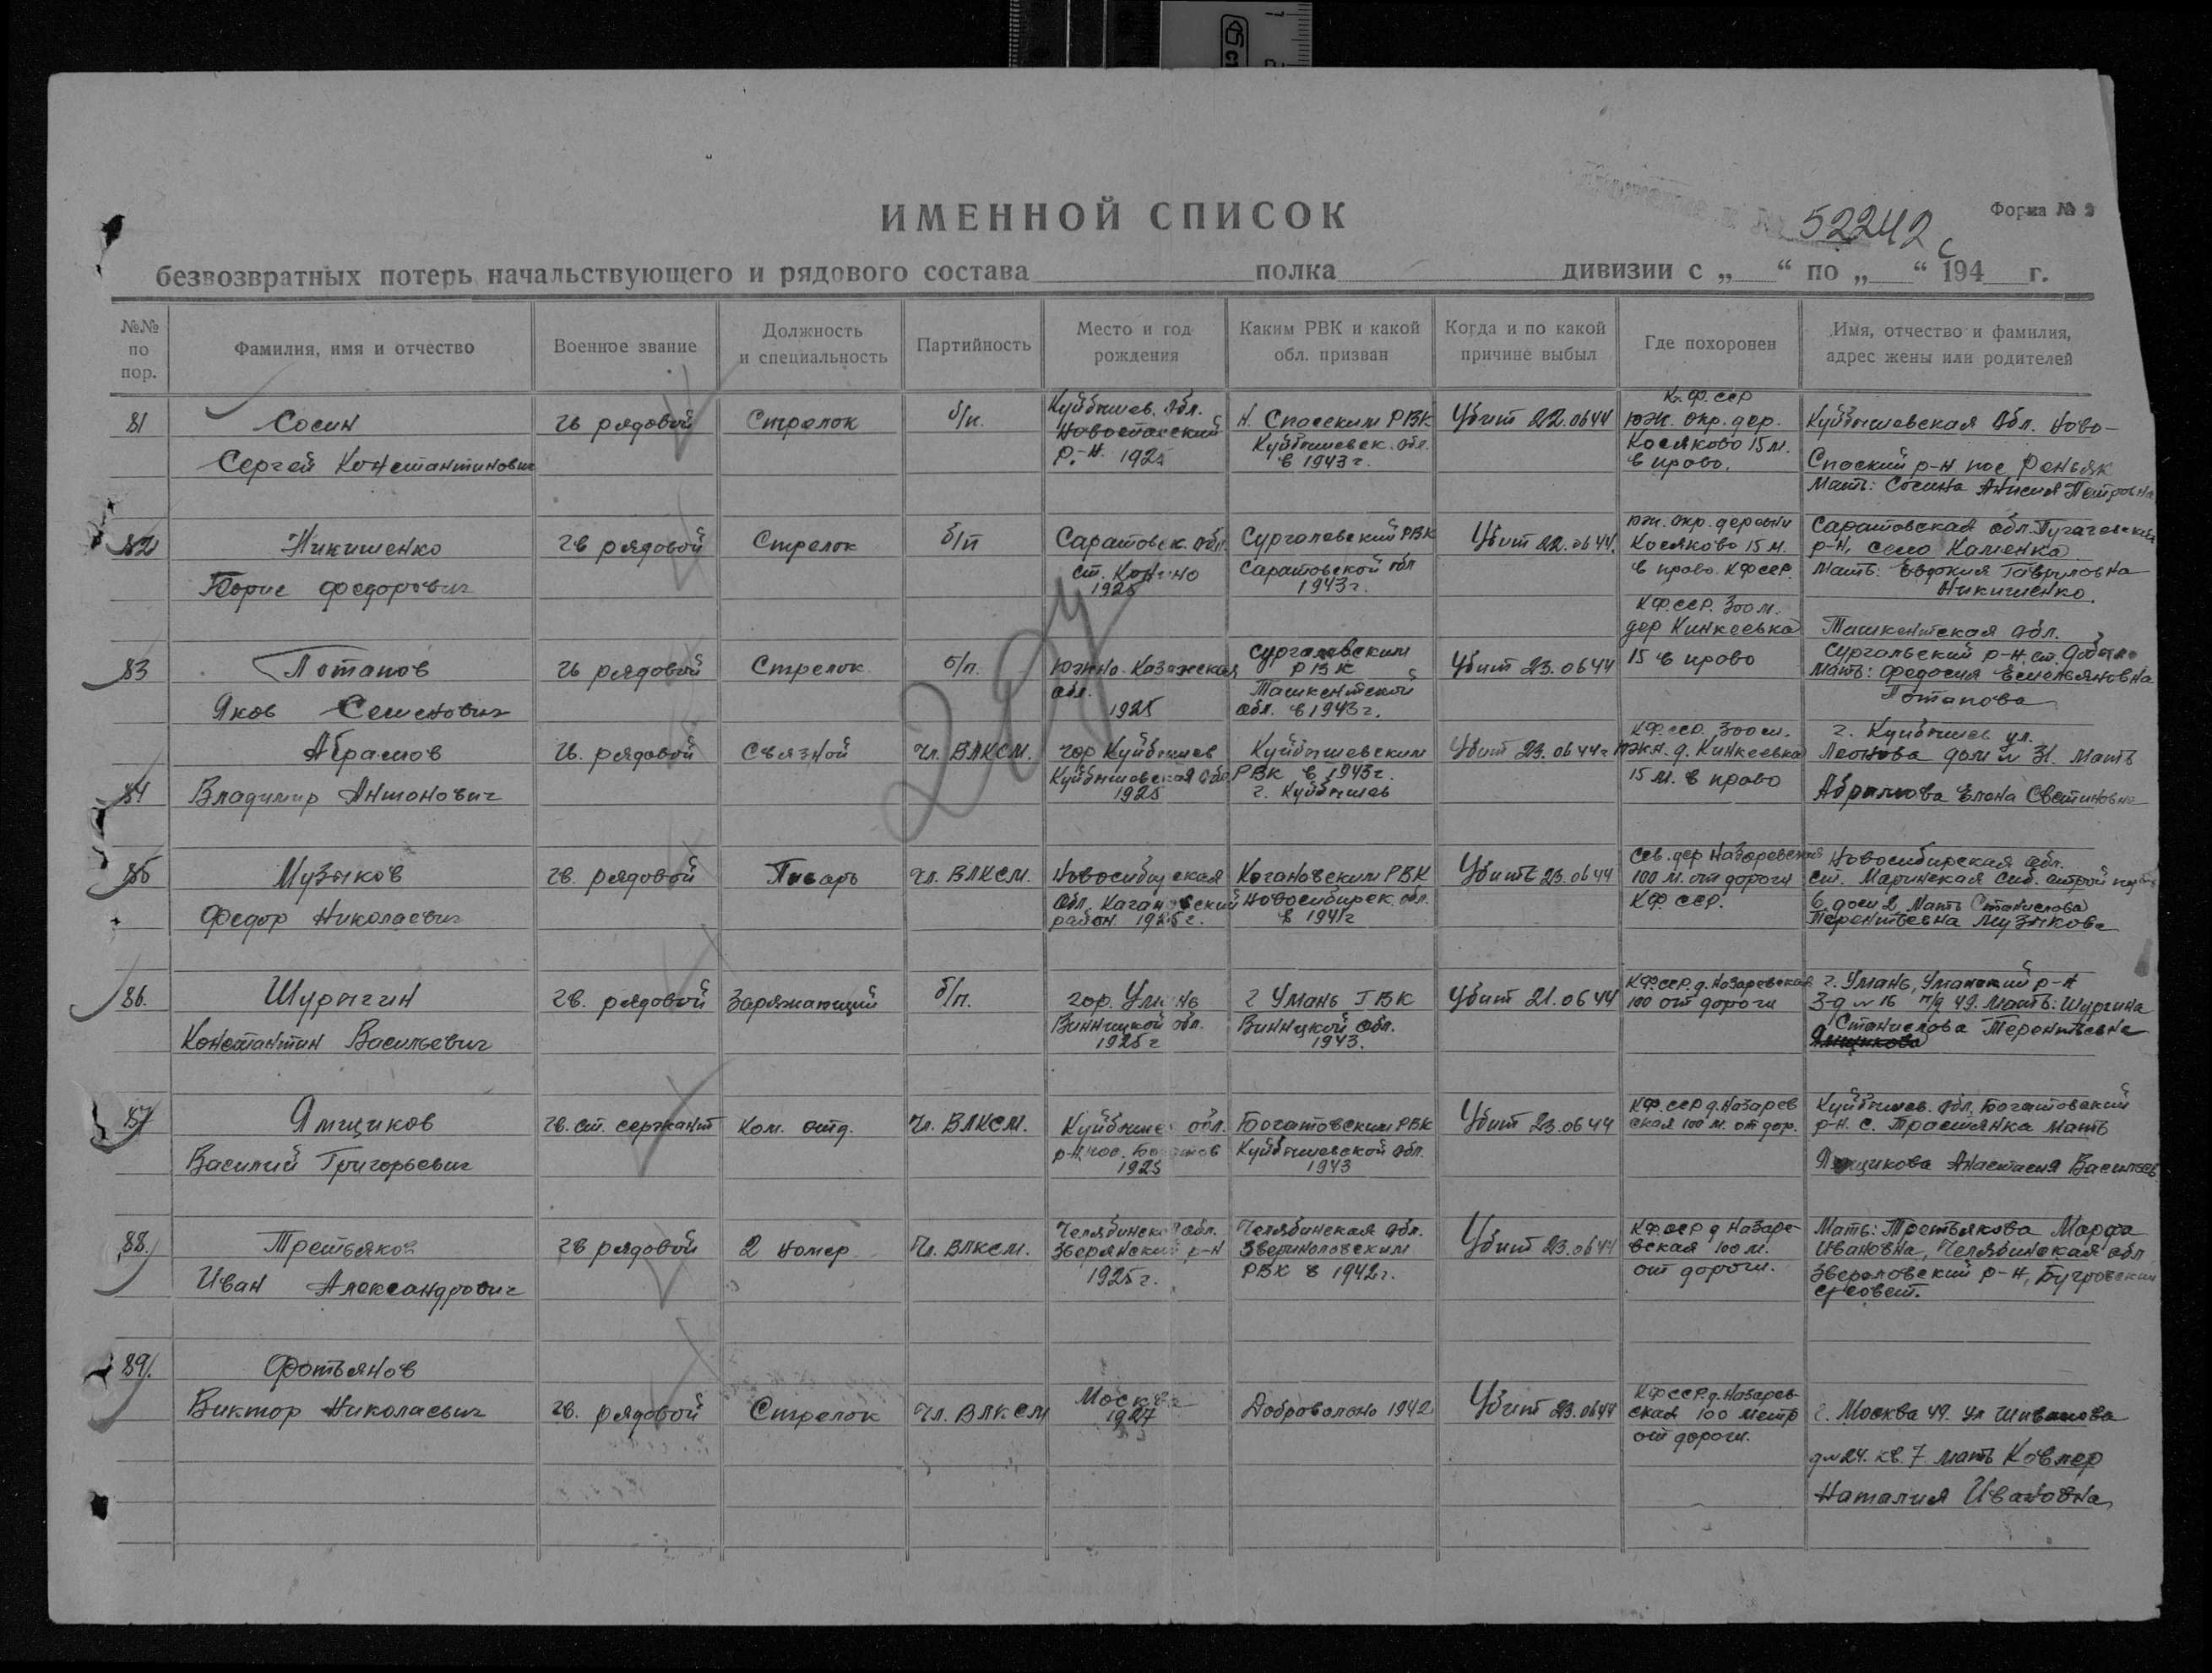 ИМЕННОЙ СПИСОК
Форма №
52242 с
безвозвратных потерь начальствующего и рядового состава полка дивизии с „ “ по „ “ 194 г.
№№ по пор.
Фамилия, имя и отчество
Военное звание
Должность и специальность
Партийность
Место и год рождения
Каким РВК и какой обл. призван
Когда и по какой причине выбыл
Где похоронен
Имя, отчество и фамилия, адрес жены или родителей
299
81
Сосин
Сергей Константинович
гв рядовой
Стрелок
б/п.
Куйбышев. обл.
Новоспасский
р-н. 1925
Н. Спасским РВК
Куйбышевск. обл.
в 1943 г.
Убит 22.06 44
К.Ф. ССР
юж. окр. дер.
Косяково 15 м.
в право.
Куйбышевская обл. Ново-
Спаский р-н пос
Мать: Сосина Анисия Петровна
82
Никишенко
Борис Федорович
гв рядовой
Стрелок
б/п
Саратовск. обл.
ст.
1925
РВК
Саратовской обл
1943 г.
Убит 22.06 44.
юж. окр. деревни
Косяково 15 м.
в право. КФССР.
Саратовская обл. Пугачевский
р-н, село Каменка
Мать: Евдокия Гавриловна
Никишенко.
83
Потапов
Яков Семенович
гв рядовой
Стрелок
б/п.
Южно-Казахская
обл.
1925
РВК
Ташкентской
обл. в 1943 г.
Убит 23.06 44
КФ.ССР. 300 м.
дер Кинкеевка
15 в право
Ташкентская обл.
р-н, ст.
Мать: Федосия Емельяновна
Потапова
84
Абрамов
Владимир Антонович
гв. рядовой
Связной
Чл. ВЛКСМ.
гор Куйбышев
Куйбышевская обл
1925
Куйбышевским
РВК в 1943 г.
г. Куйбышев
Убит 23.06 44 г
КФ.ССР. 300 м.
южн. д. Кинкеевка
15 м. в право
г. Куйбышев ул.
Леонова дом № 31. Мать
Абрамова Елена
85
Музыков
Федор Николаевич
гв. рядовой
Писарь
Чл. ВЛКСМ.
Новосибирская
обл. Кагановский
район. 1925 г.
Кагановским РВК
Новосибирск. обл.
в 1941 г
Убит 23.06 44
Сев. дер Назаревская
100 м. от дороги
КФ. ССР.
Новосибирская обл.
ст.
дом 2 Мать Станислова
Терентьевна Музыкова
86.
Шурыгин
Константин Васильевич
гв. рядовой
Заряжающий
б/п.
гор. Умань
Винницкой обл.
1925 г
г Умань ГВК
Виннцкой обл.
1943.
Убит 21.06 44
КФССР. д. Назаревская
100 от дороги
г. Умань, Уманский р-н
3-д № 16 п/я 49. Мать: Шургина
Станислова Терентьевна
87
Ямщиков
Василий Григорьевич
гв. ст. сержант
Ком. отд.
Чл. ВЛКСМ.
Куйбышев обл.
1925
Богатовским РВК
Куйбышевской обл.
1943
Убит 23.06 44
КФ.ССР д. Назарев
ская 100 м. от дор.
Куйбышев. обл, Богатовский
р-н. с. Трастянка Мать
Ямщикова Анастасия Васильев.
88.
Третьяков
Иван Александрович
гв рядовой
2 номер
Чл. ВЛКСМ.
Челябинская обл.
р-н
1925 г.
Челябинская обл.
Звериноловским
РВК в 1942 г.
Убит 23.06 44
КФССР д Назаре-
вская 100 м.
от дороги.
Мать: Третьякова Марфа
Ивановна, Челябинская обл
р-н,
с/совет.
89.
Фотьянов
Виктор Николаевич
гв. рядовой
Стрелок
Чл. ВЛКСМ
Москва
1927
Доброволно 1942
Убит 23.06 44
КФССР. д. Назарев-
ская 100 метр
от дороги.
г. Москва 49. ул
д № 24. кв. 7 мать
Наталия Ивановна